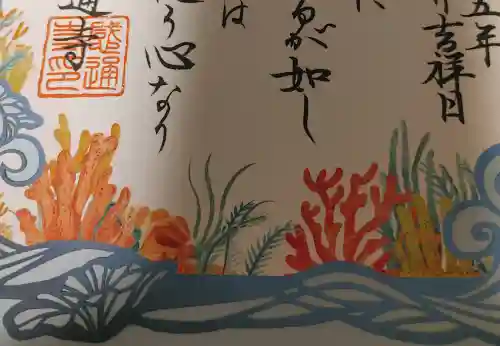 五年
吉祥日
るが如し
は
う心なり
通寺
感通
寺印